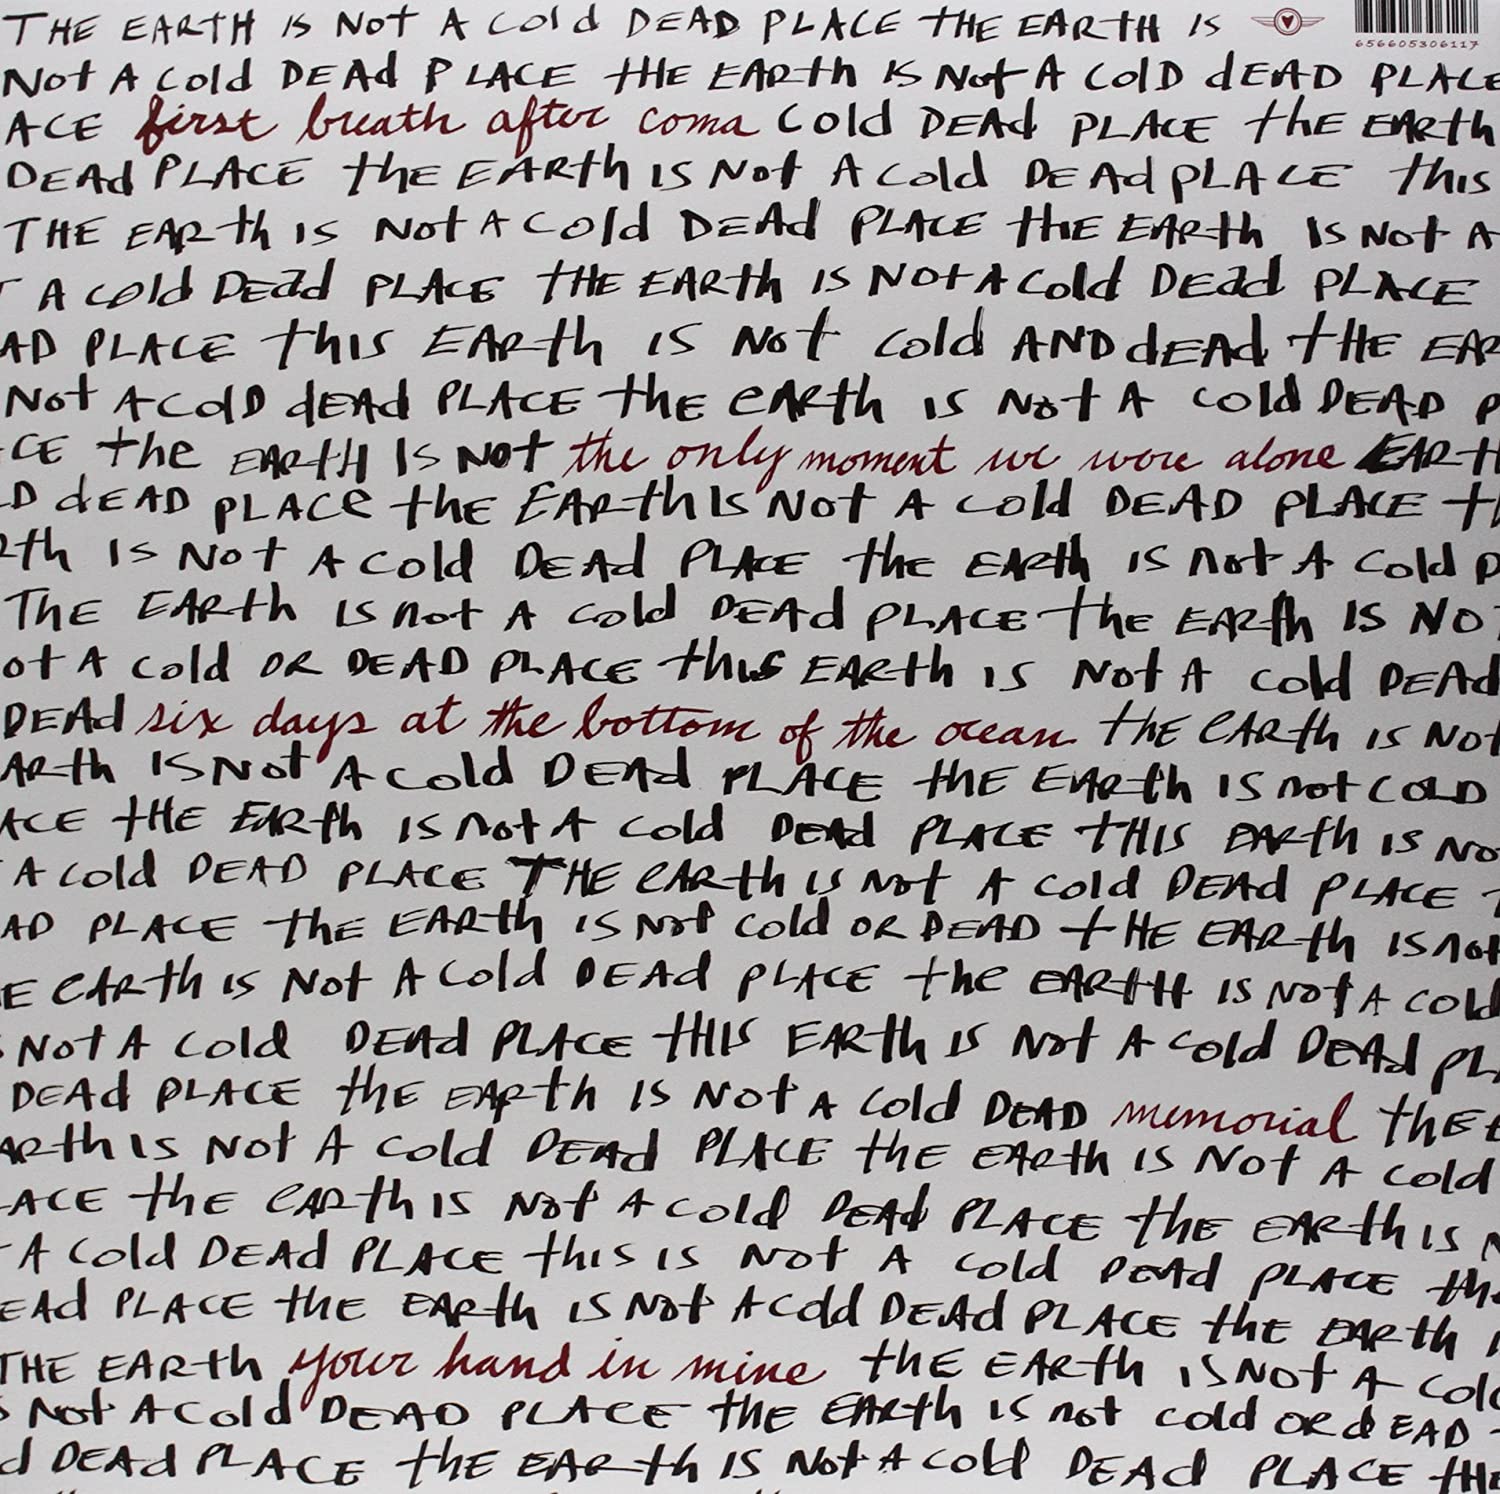 THE EARTH IS Not A Cold DEAD PLACE tHE EARTH IS
656605306117
Not A Cold DEAd PLACE tHE EARth IS Not A ColD dEAD PLACE
ACE first breath after coma Cold DEAd PLACE thE EARth
DEAd PLACE thE EARth IS Not A Cold DEAd PLACE this
THE EARth IS Not A Cold DEAd PLACE tHE EARth IS Not A
A cold DEad PLACE tHE EARth IS Not A Cold DEad PLACE
AD PLACE this EARth IS Not Cold AND dEAd tHE EAR
Not A ColD dEAd PLACE thE eARth IS Not A Cold DEAD P
CE the EARtH IS Not the only moment we were alone EARt
D dEAD PLACe thE EARth IS Not A Cold DEAD PLACE t
th IS Not A Cold DEAd PLACE the EARth IS not A Cold D
ThE EARth IS not A Cold DEAd PLACE thE EARth IS NO
ot A Cold OR DEAD PLACE this EARth IS Not A Cold DEAd
DEAd six days at the bottom of the ocean thE EARth IS Not
ARth IS Not A Cold DEAd PLACE thE EARth IS not COLD
ACE tHE EARth IS Not A Cold DEAd PLACE tHIS EARth IS No
A Cold DEAD PLACE THE eARth IS Not A Cold DEAd PLACE
AD PLACE thE EARth IS Not Cold OR DEAD tHE EARth IS not
E eARth IS Not A Cold DEAd PLACE the EARtH IS Not A Cold
Not A Cold DEAd PLACE tHIS EARth IS Not A Cold DEAd PL
DEAd PLACE thE EARth IS Not A Cold DEAD memorial thE
ARth IS Not A Cold DEAd PLACE thE EARth IS Not A Cold
ACE thE eARth IS Not A Cold DEAd PLACE thE EARth IS
A Cold DEAd PLACE this IS Not A Cold DEAd PLACE th
EAd PLACE thE EARth IS Not A Cold DEAd PLACE thE EARth
THE EARth your hand in mine thE EARth IS Not A Cold
Not A Cold DEAD PLACE thE EARth IS not cold OR dEAD
d DEAd PLACE thE EARth IS Not A Cold DEAd PLACE tHE